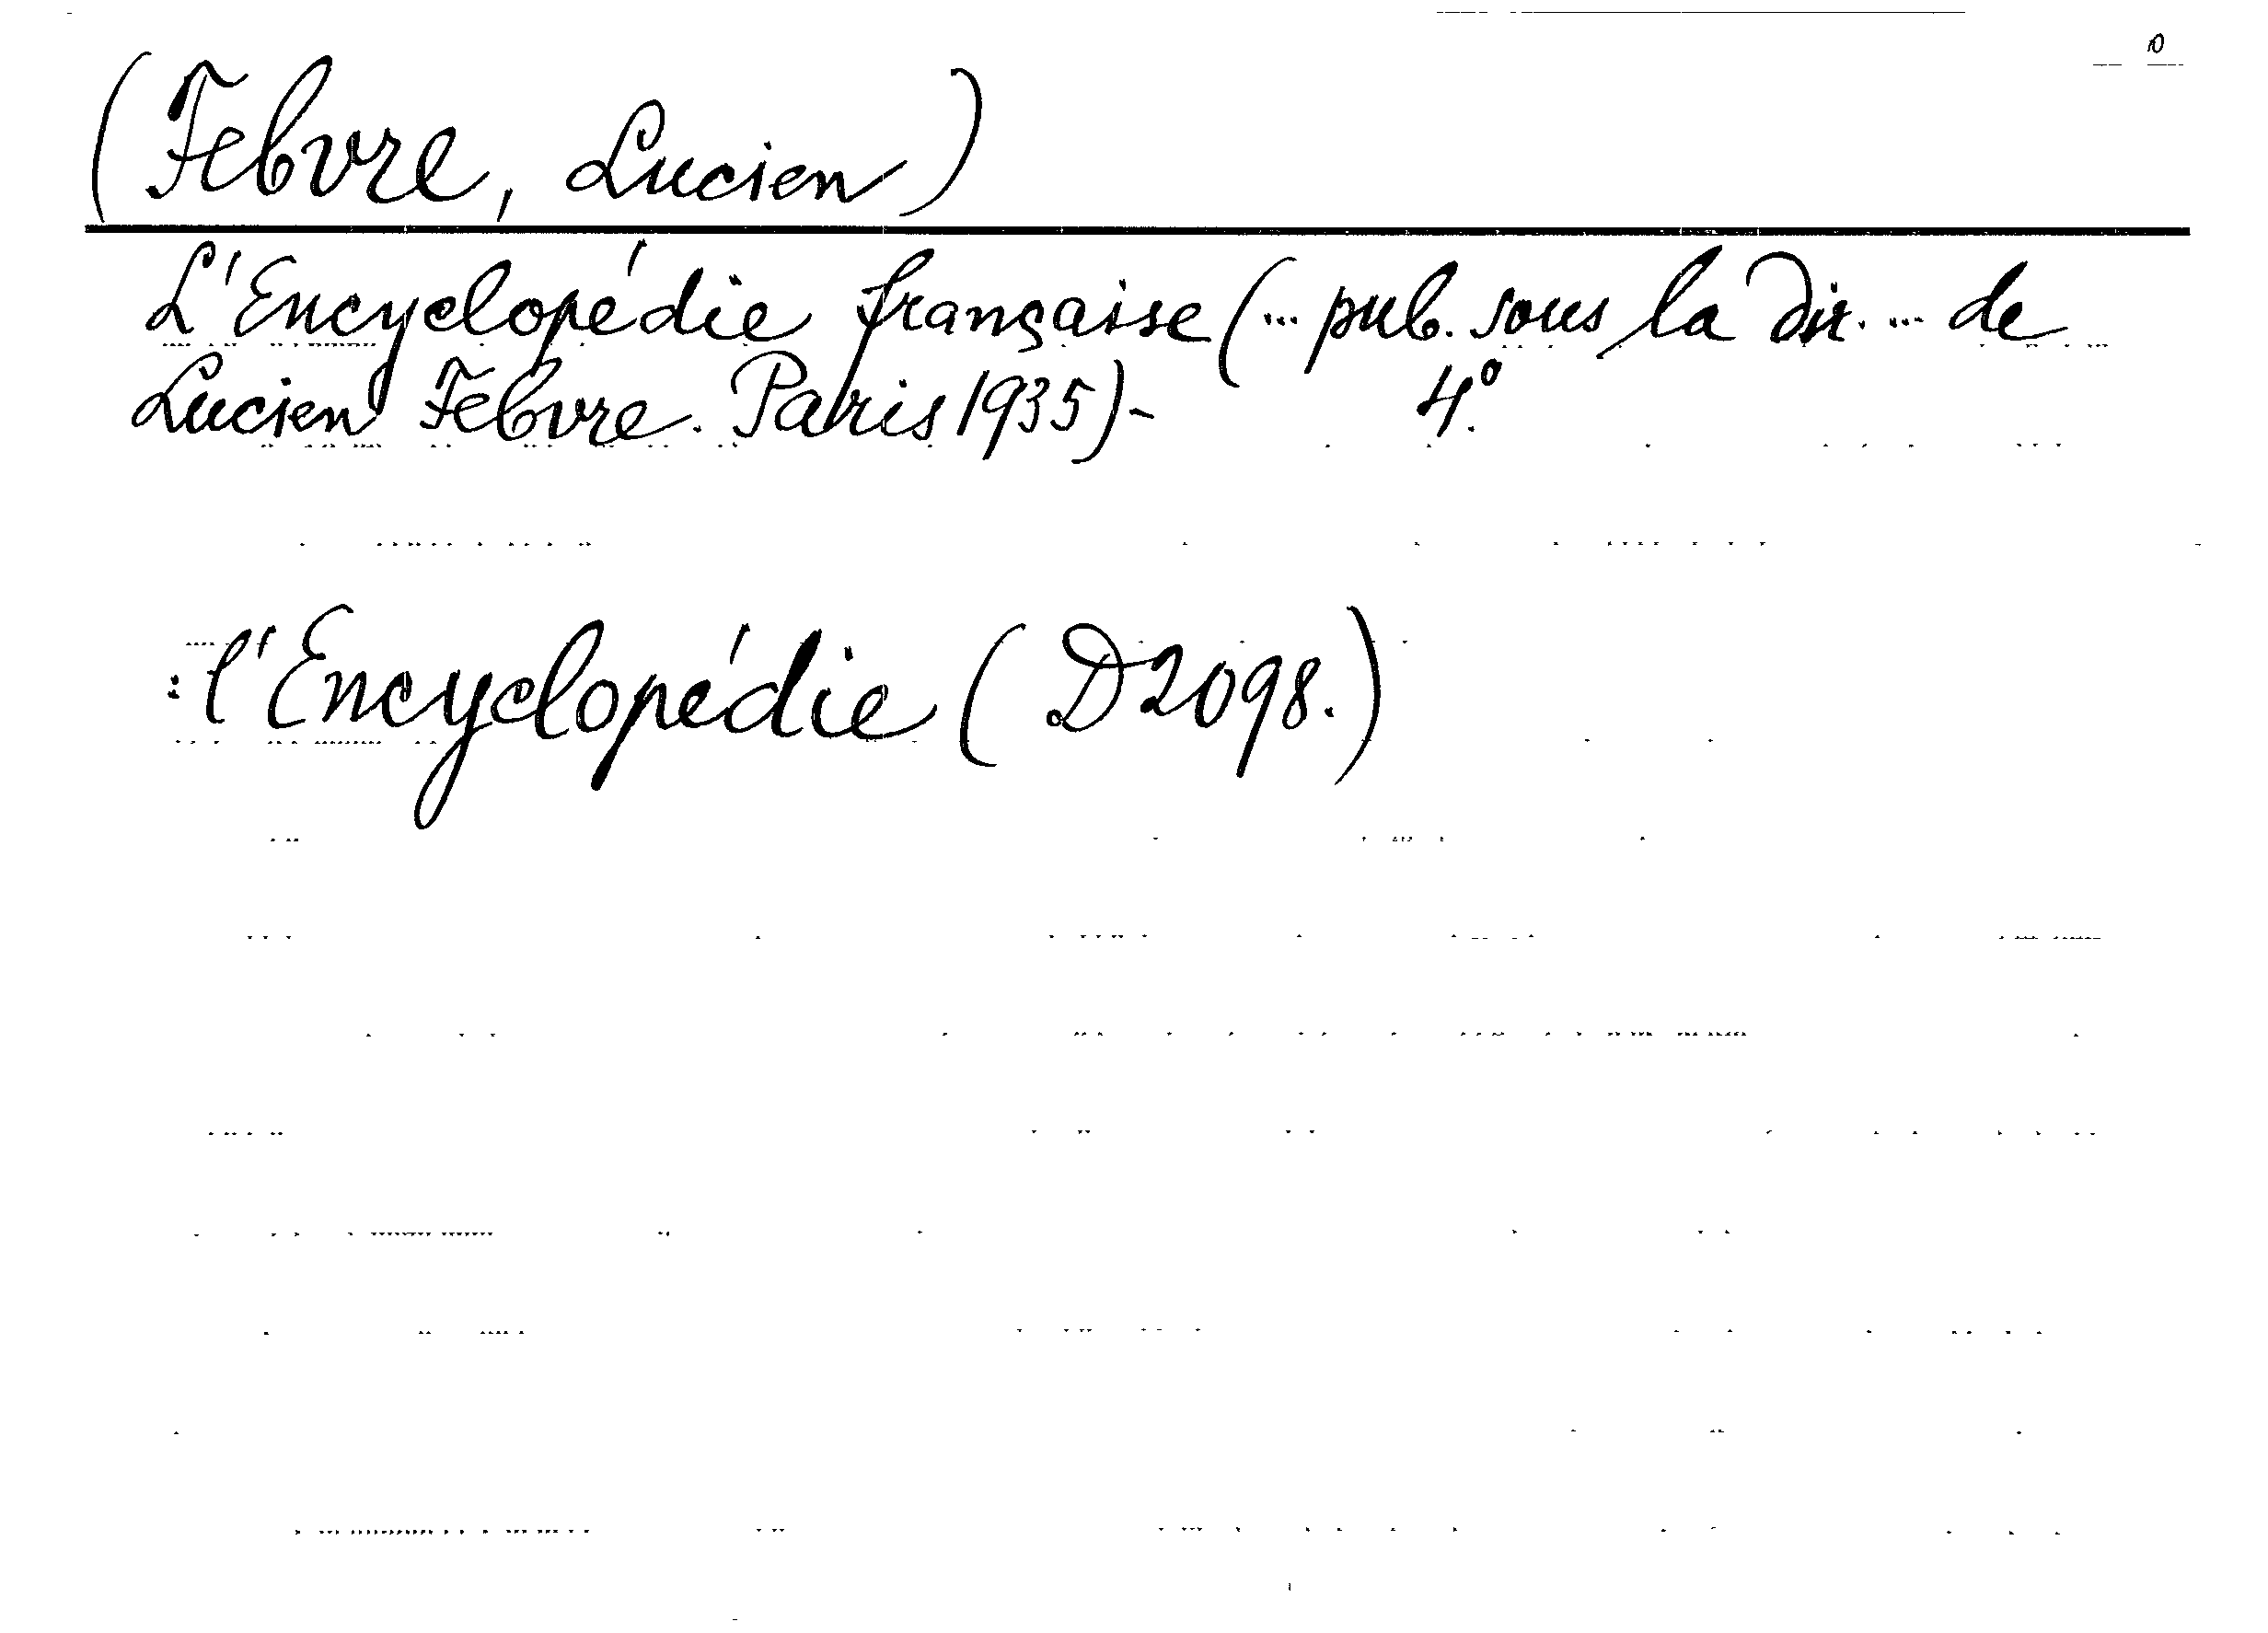 (Febvre, Lucien)
L'Encyclopédie française (... pub. sous la dir. ... de
Lucien Febvre. Paris 1935)- 4º.
: l'Encyclopédie (D2098.)